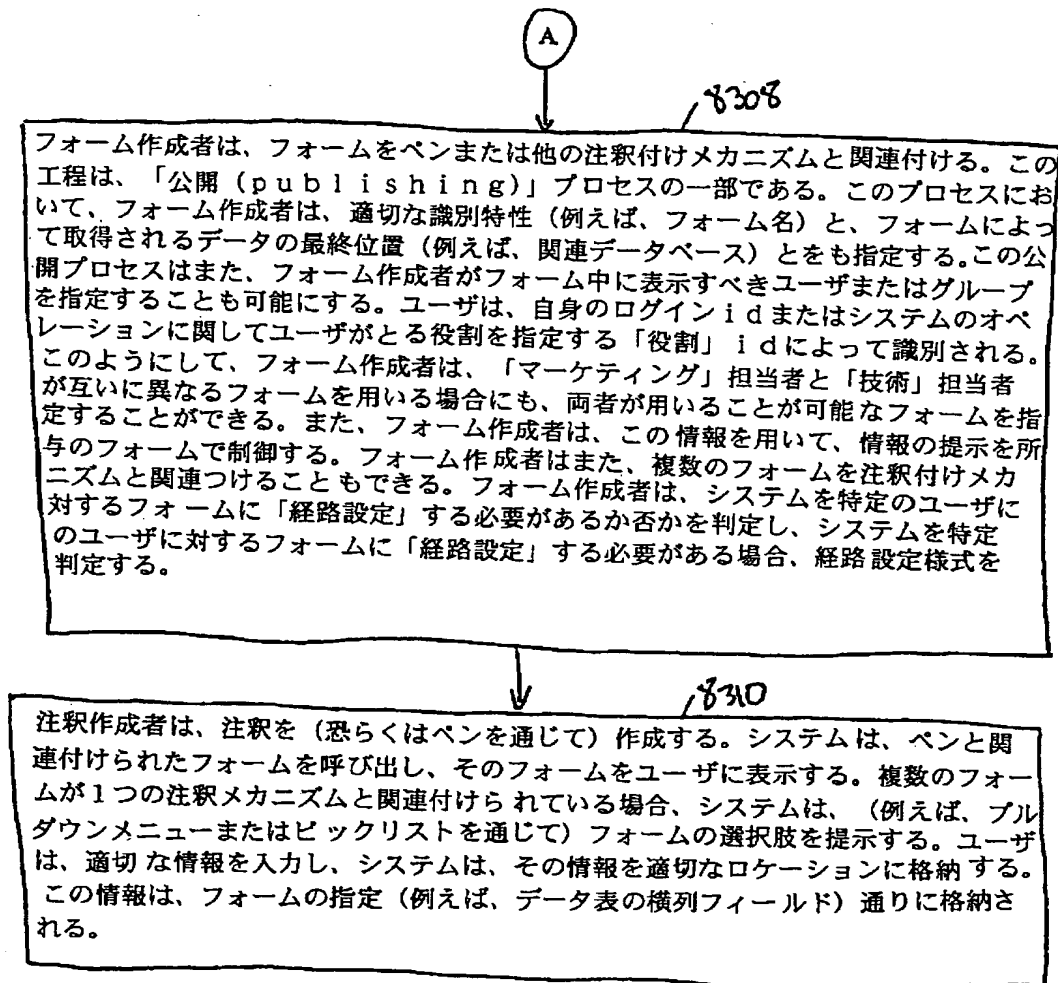 A
8308
フォーム作成者は、フォームをペンまたは他の注釈付けメカニズムと関連付ける。この
工程は、「公開（ｐｕｂｌｉｓｈｉｎｇ）」プロセスの一部である。このプロセスにお
いて、フォーム作成者は、適切な識別特性（例えば、フォーム名）と、フォームによっ
て取得されるデータの最終位置（例えば、関連データベース）とをも指定する。この公
開プロセスはまた、フォーム作成者がフォーム中に表示すべきユーザまたはグループ
を指定することも可能にする。ユーザは、自身のログインｉｄまたはシステムのオペ
レーションに関してユーザがとる役割を指定する「役割」ｉｄによって識別される。
このようにして、フォーム作成者は、「マーケティング」担当者と「技術」担当者
が互いに異なるフォームを用いる場合にも、両者が用いることが可能なフォームを指
定することができる。また、フォーム作成者は、この情報を用いて、情報の提示を所
与のフォームで制御する。フォーム作成者はまた、複数のフォームを注釈付けメカ
ニズムと関連つけることもできる。フォーム作成者は、システムを特定のユーザに
対するフォームに「経路設定」する必要があるか否かを判定し、システムを特定
のユーザに対するフォームに「経路設定」する必要がある場合、経路設定様式を
判定する。
8310
注釈作成者は、注釈を（恐らくはペンを通じて）作成する。システムは、ペンと関
連付けられたフォームを呼び出し、そのフォームをユーザに表示する。複数のフォー
ムが１つの注釈メカニズムと関連付けられている場合、システムは、（例えば、プル
ダウンメニューまたはピックリストを通じて）フォームの選択肢を提示する。ユーザ
は、適切な情報を入力し、システムは、その情報を適切なロケーションに格納する。
この情報は、フォームの指定（例えば、データ表の横列フィールド）通りに格納さ
れる。